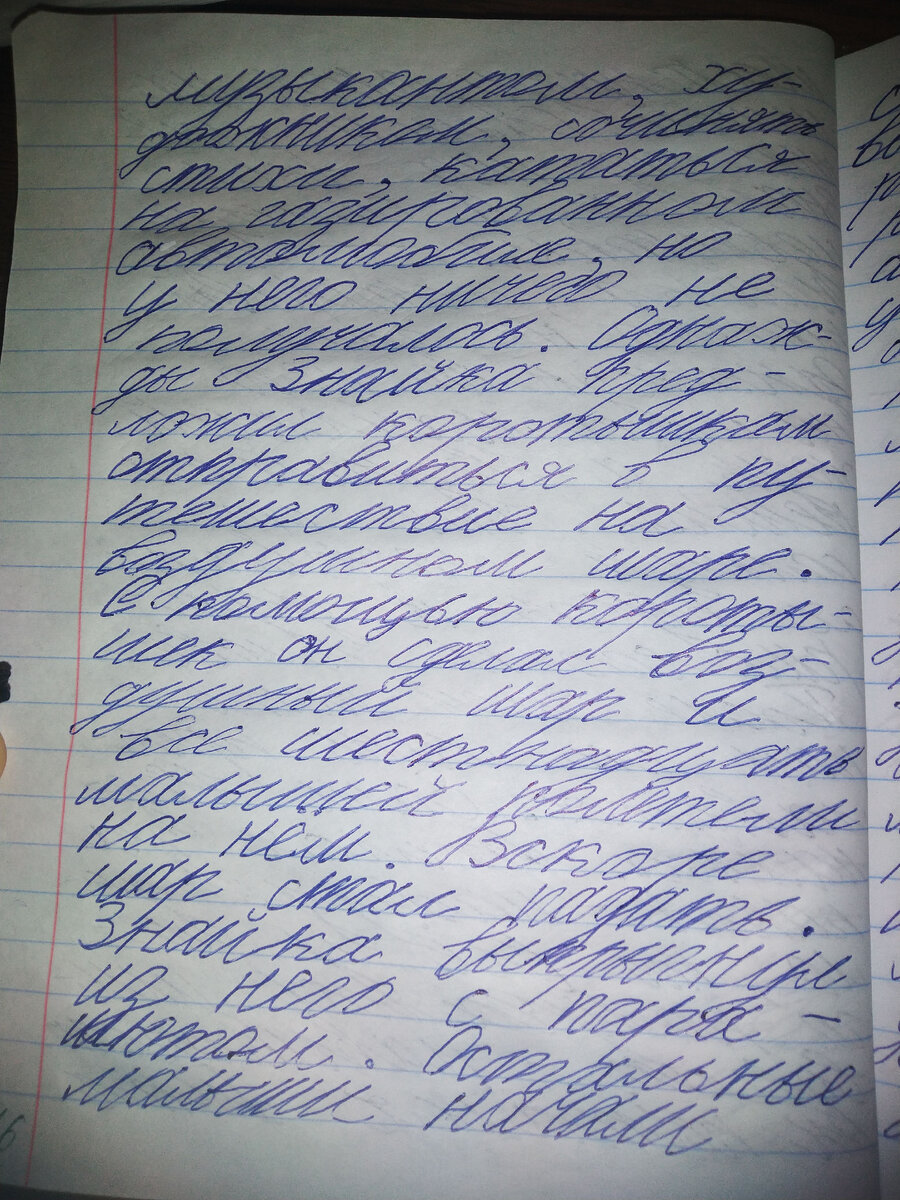 музыкантом, ху-
дожником, сочинять
стихи, кататься
на газированном
автомобиле, но
у него ничего не
получалось. Однаж-
ды Знайка пред-
ложил коротышкам
отправиться в пу-
тешествие на
воздушном шаре.
С помощью короты-
шек он сделал воз-
душный шар и
все шестнадцать
малышей полетели
на нём. Вскоре
шар стал падать.
Знайка выпрыгнул
из него с пара-
шютом. Остальные
малыши начали
16